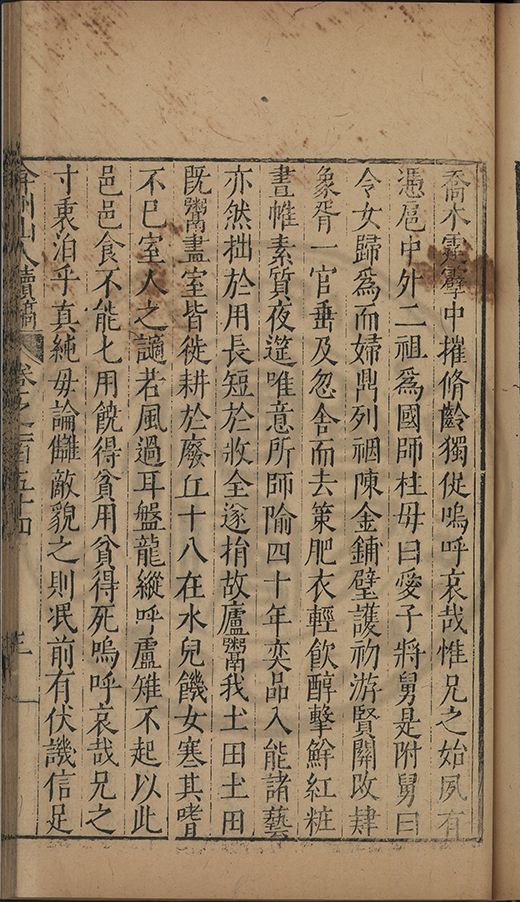 喬木霹靂中摧脩齡獨促嗚呼哀哉惟兄之始夙有
憑扈中外二祖爲國師柱毋曰愛子將舅是附舅曰
令女歸爲而婦鼎列裀陳金鋪璧護初游賢關改肄
象胥一官垂及忽舍而去策肥衣輕飲醇擊鮮紅粧
晝帷素質夜筵唯意所師隃四十年奕品入能諸藝
亦然拙於用長短於收全遂捐故廬鬻我土田土田
旣鬻畫室皆徙耕於廢丘十八在水兒饑女寒其嗜
不已室人之讁若風過耳盤龍縱呼盧雉不起以此
邑邑食不能七用饒得貧用貧得死嗚呼哀哉兄之
寸裹泊乎真純毋論讎敵貌之則泯前有伏譏信足
弇州山人續稿 卷之一百五十四 三